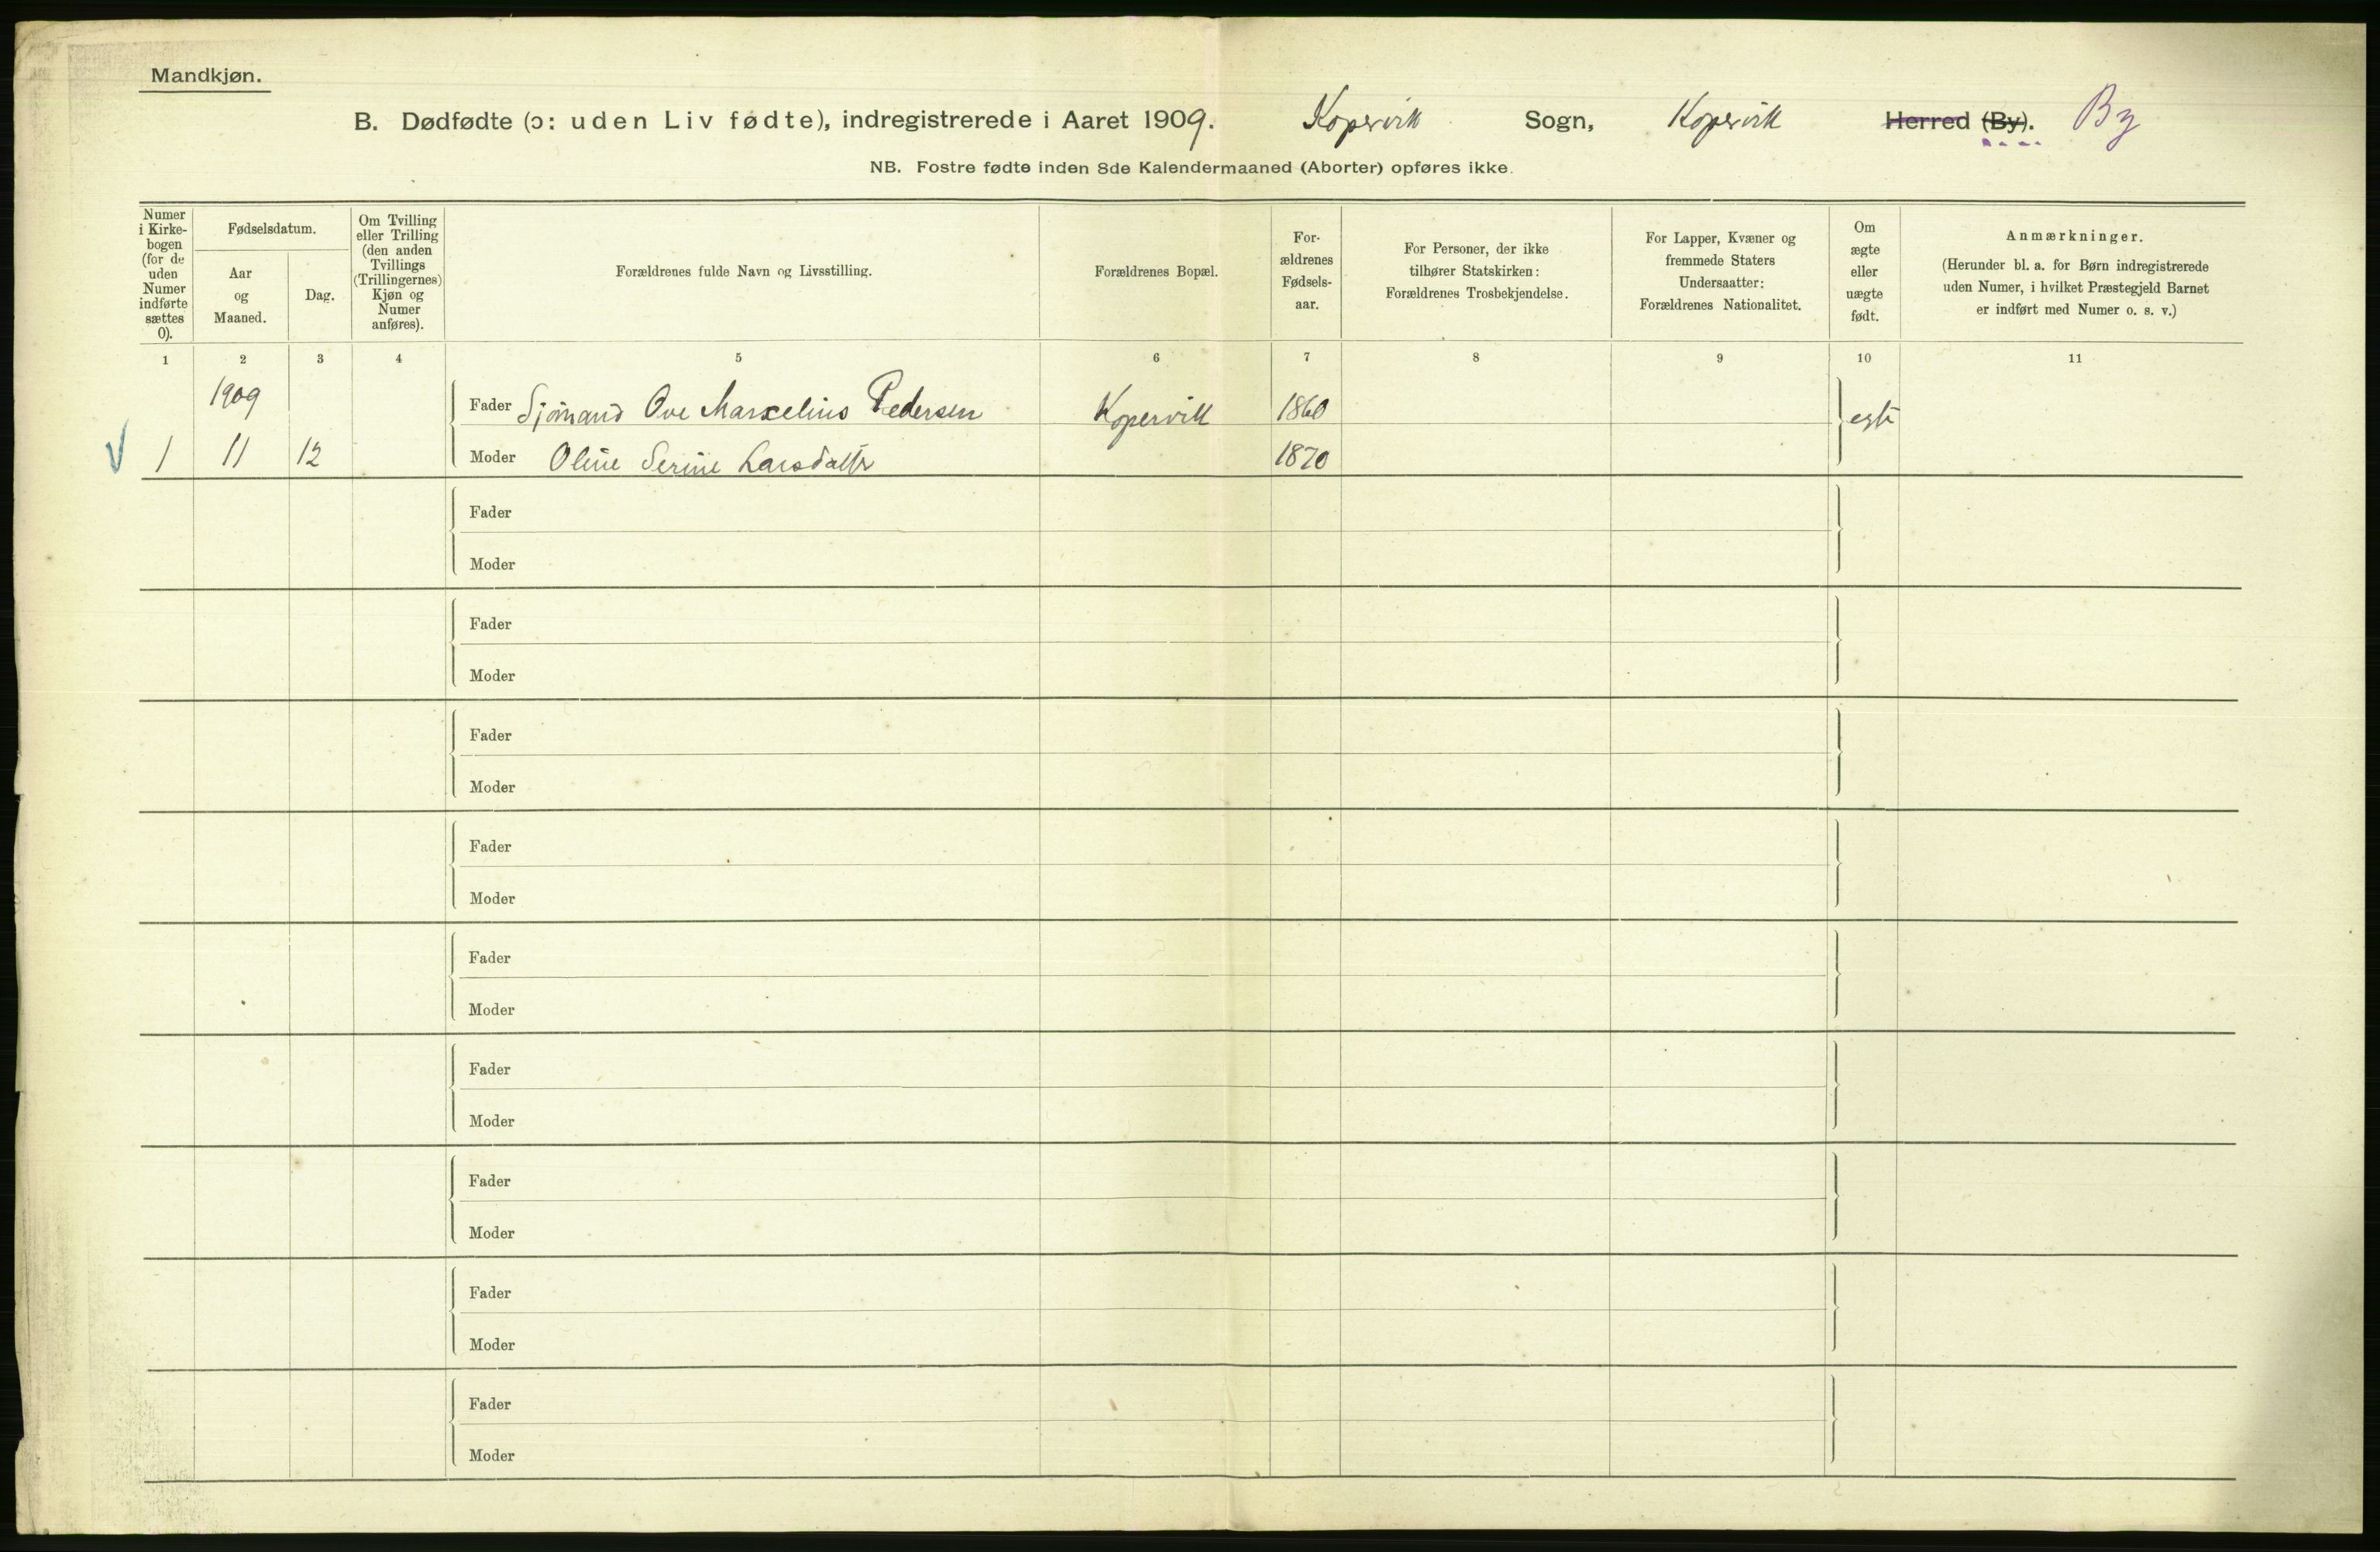 Mandkjøn.
B. Dødfødte (ɔ: uden Liv fødte), indregistrerede i Aaret 1909. Kopervik Sogn, Kopervik Herred (By). By
NB. Fostre fødte inden 8de Kalendermaaned (Aborter) opføres ikke.
Numer
i Kirke-
bogen
(for de
uden
Numer
indførte
sættes
0).
Fødselsdatum.
Aar
og
Maaned.
Dag.
Om Tvilling
eller Trilling
(den anden
Tvillings
(Trillingernes)
Kjøn og
Numer
anføres).
Forældrenes fulde Navn og Livsstilling.
Forældrenes Bopæl.
For-
ældrenes
Fødsels-
aar.
For Personer, der ikke
tilhører Statskirken:
Forældrenes Trosbekjendelse.
For Lapper, Kvæner og
fremmede Staters
Undersaatter:
Forældrenes Nationalitet.
Om
ægte
eller
uægte
født.
Anmærkninger.
(Herunder bl. a. for Børn indregistrerede
uden Numer, i hvilket Præstegjeld Barnet
er indført med Numer o. s. v.)
1 2 3 4 5 6 7 8 9 10 11
1909
Fader Sjømand Ove Marselius Pedersen Kopervik 1860 egte
1 11 12 Moder Oline Serine Larsdatter 1870
Fader
Moder
Fader
Moder
Fader
Moder
Fader
Moder
Fader
Moder
Fader
Moder
Fader
Moder
Fader
Moder
Fader
Moder